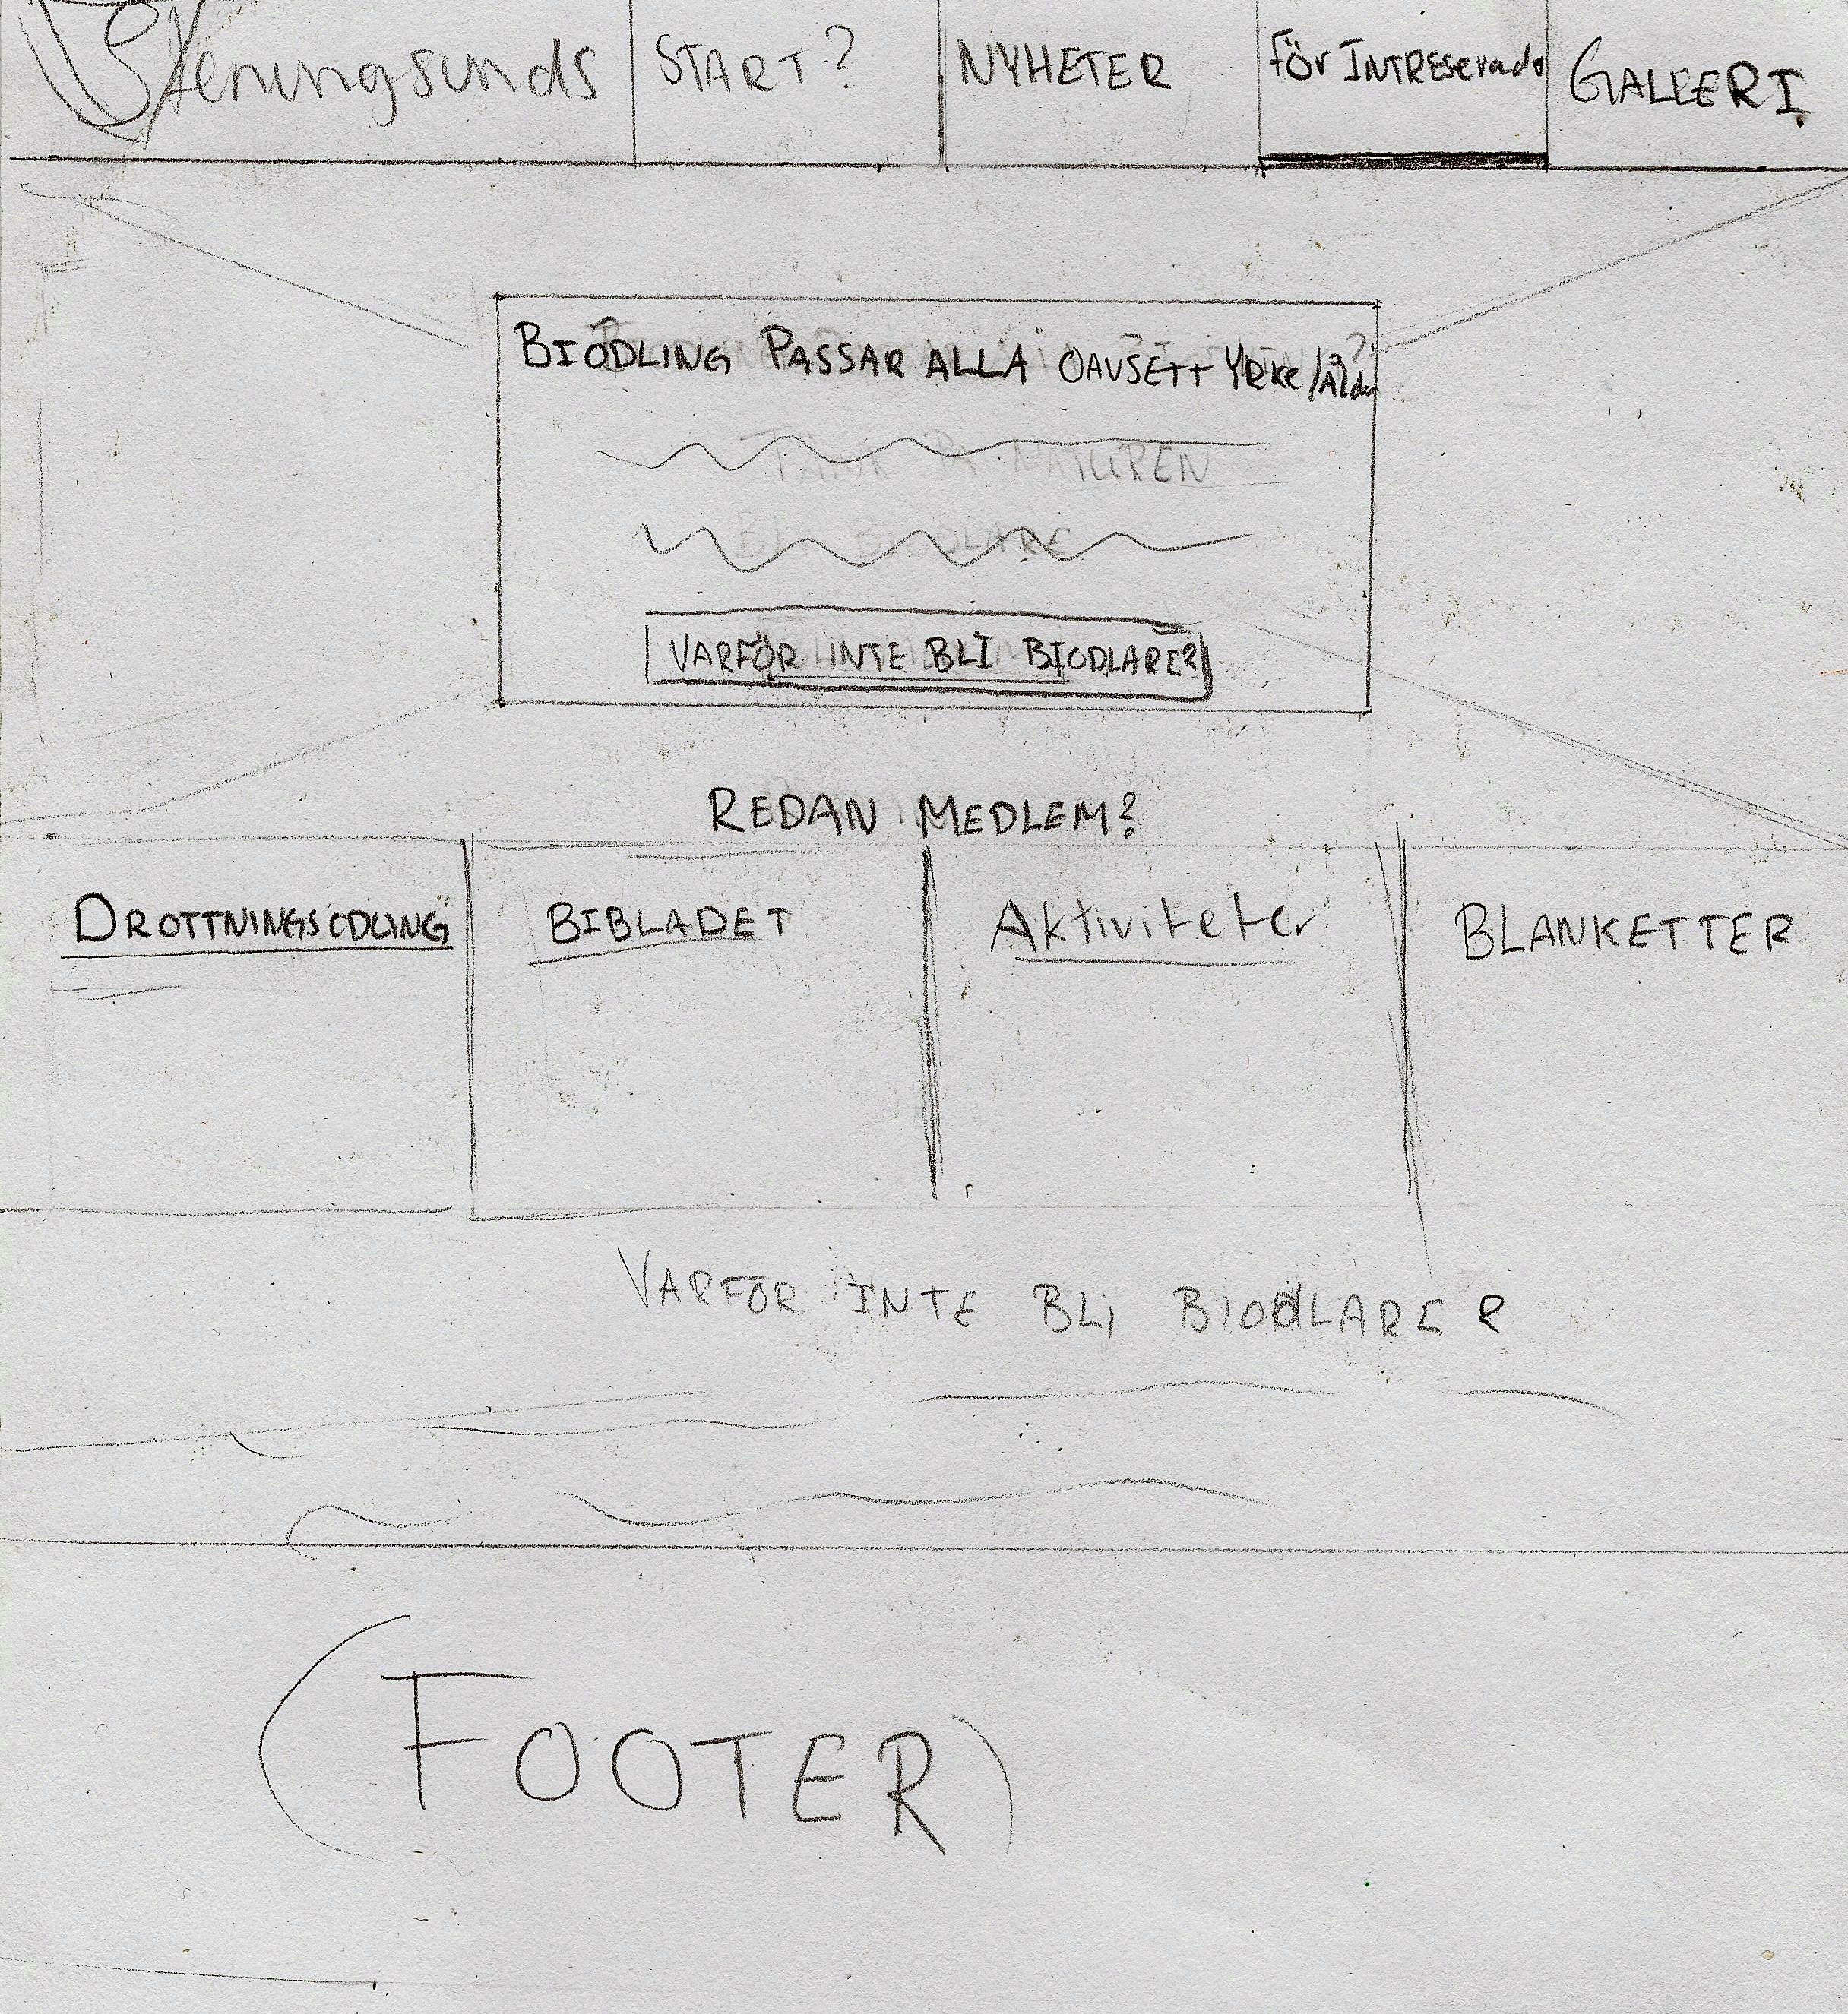 Stenungsunds START? NYHETER För INTRESerade GALLERI
BIODLING PASSAR ALLA OAVSETT YRKE/Ålder
TÄNK PÅ NATUREN
BLI BIODLARE
VARFÖR INTE BLI BIODLARE?
REDAN MEDLEM?
DROTTNINGSODLING BIBLADET Aktiviteter BLANKETTER
VARFÖR INTE BLI BIODLARE?
(FOOTER)